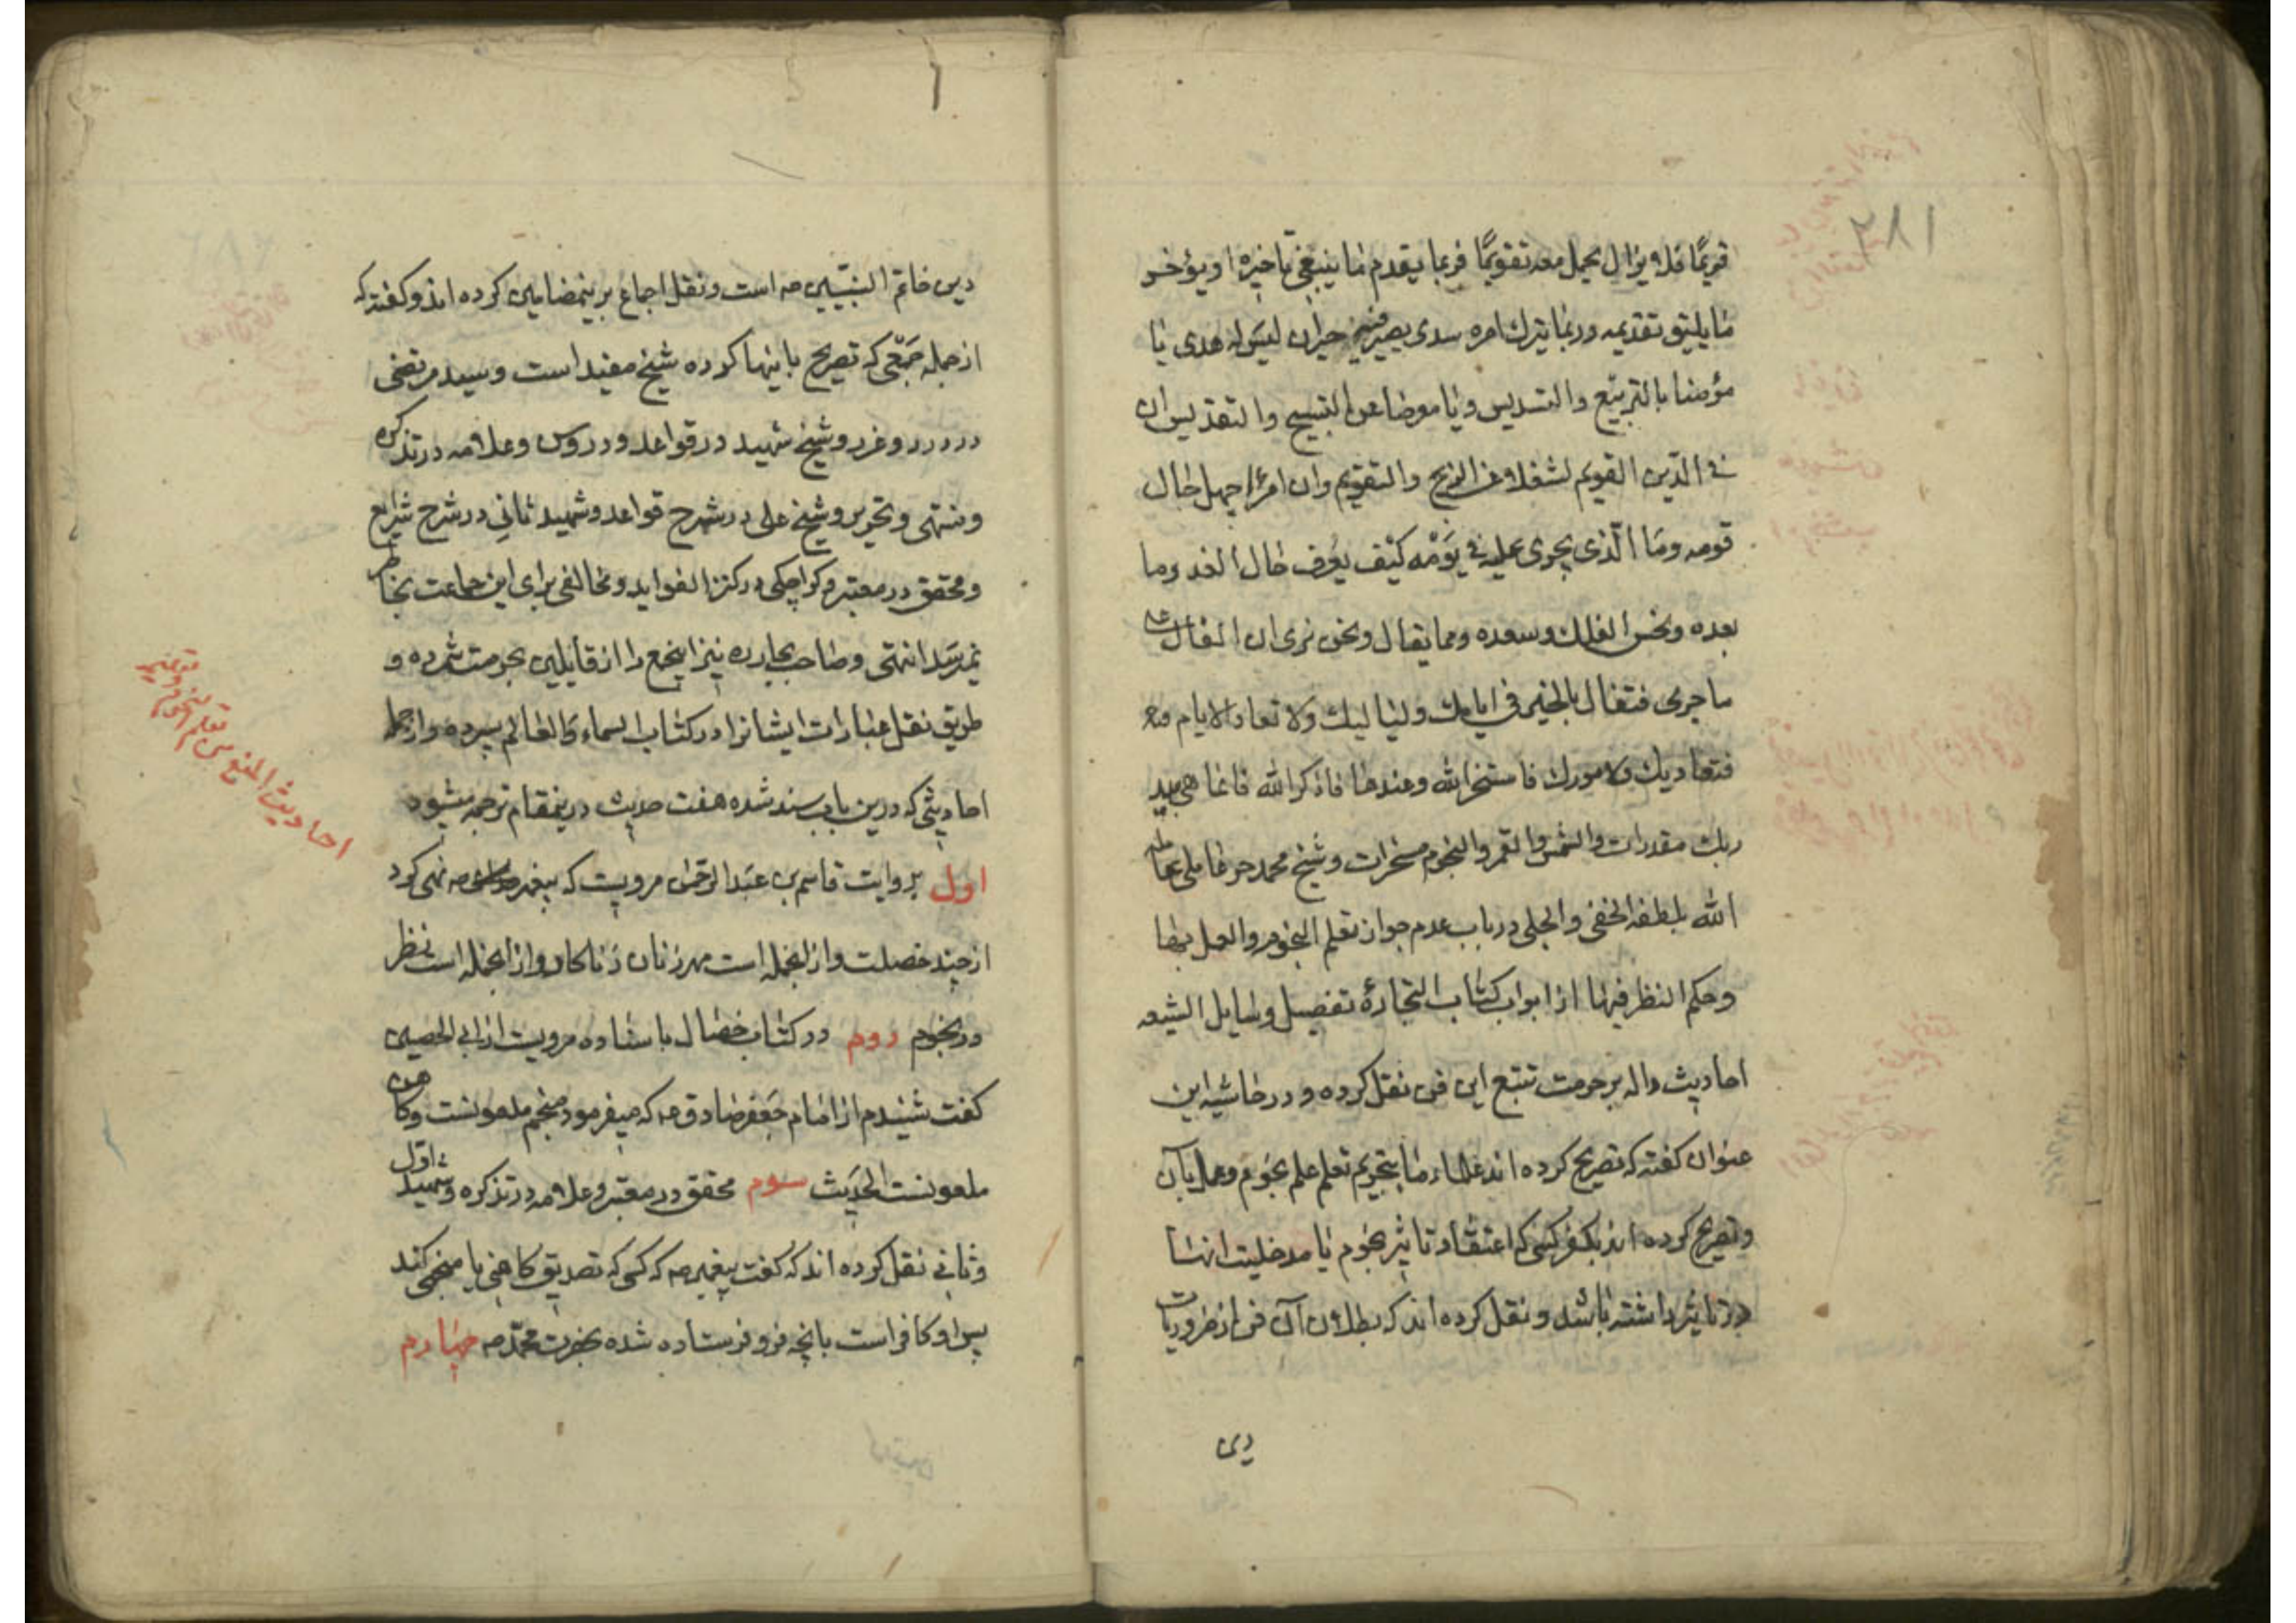 ۲۸۱
قویمًا فلا یزال یحمل معه تقویمًا فربما یقدم ما ینبغی تاخیره او یؤخر
ما یلیق تقدیمه وربما یترک امره سدی حیران لیس له هدی یا
مؤمنا بالتربیع والتسدیس ویا معرضا عن التسبیح والتقدیس ان
فی الدّین القویم لشغلا عن الزیج والتقویم وان امرءا جهل حال
قومه وما الّذی یجری علیه فی یَوْمه کیْف یعرف حال الغد وما
بعده ونحس الفلک وسعده ومما یقال ونحن نری ان الفال علی
ما جری فتفال بالخیر فی ایامک ولیالیک ولا تعاد الایام
فتعادیک ولامورک فاستخر الله وعندها فاذکر الله فانما هی بید
ربک مقدرات والشمس والقمر والنجوم مسخرات وشیخ محمد حر عاملی عامله
الله بلطفه الخفی والجلی در باب عدم جواز تعلم النجوم والعمل بها
وحکم النظر فیها از ابواب کتاب التجارة تفصیل وسایل الشیعه
احادیث داله بر حرمت تتبع این فن نقل کرده و در حاشیه این
عنوان کفته که تصریح کرده اند علماء ما بتحریم تعلم علم نجوم وعمل بآن
وتصریح کرده اند بکفر کسی که اعتقاد تاثیر نجوم یا مدخلیت انها
در تاثیر داشته باشد و نقل کرده اند که بطلان آن فن از ضروریات
دین
دین خاتم النبّیین صه است ونقل اجماع بر ینمضامین کرده اند وکفته که
از جمله جَمْعی که تصریح باینها کرده شیخ مفید است وسید مرتضی
در درر وغرر وشیخ شهید در قواعد ودروس وعلامه در تذکره
ومنتهی وتحریر وشیخ علی در شرح قواعد وشهید ثانی در شرح شرایع
ومحقق در معتبر وکراجکی در کنز الفواید ومخالفی برای این جماعت بخاطر
نمیرسد انتهی وصاحب بحار ره نیز اینجمع را از قایلین بحرمت شمرده و
طریق نقل عبارات ایشانرا در کتاب السماء والعالم سپرده واز جمله
احادیثی که درین باب سند شده هفت حدیث درینمقام ترجمه میشود
اول بروایت قاسم بن عبد الرحمن مرویست که پیغمبر صه نهی کرد
از چند خصلت واز انجمله است مهر زنان زناکار واز انجمله است نظر
در نجوم دوم در کتاب خصال باسناده مرویست از ابی الحصین
کفت شنیدم از امام جعفر صادق عه که میفرمود منجم ملعونست وکاهن
ملعونست الحدیث سوم محقق در معتبر وعلامه در تذکره وشهید اوّل
وثانی نقل کرده اند که کفت پیغمبر صه که کسی که تصدیق کاهنی یا منجمی کند
پس او کافر است بانچه فرو فرستاده شده بحضرت محمّد صه چهارم
احادیث المنع من تعلم النجوم